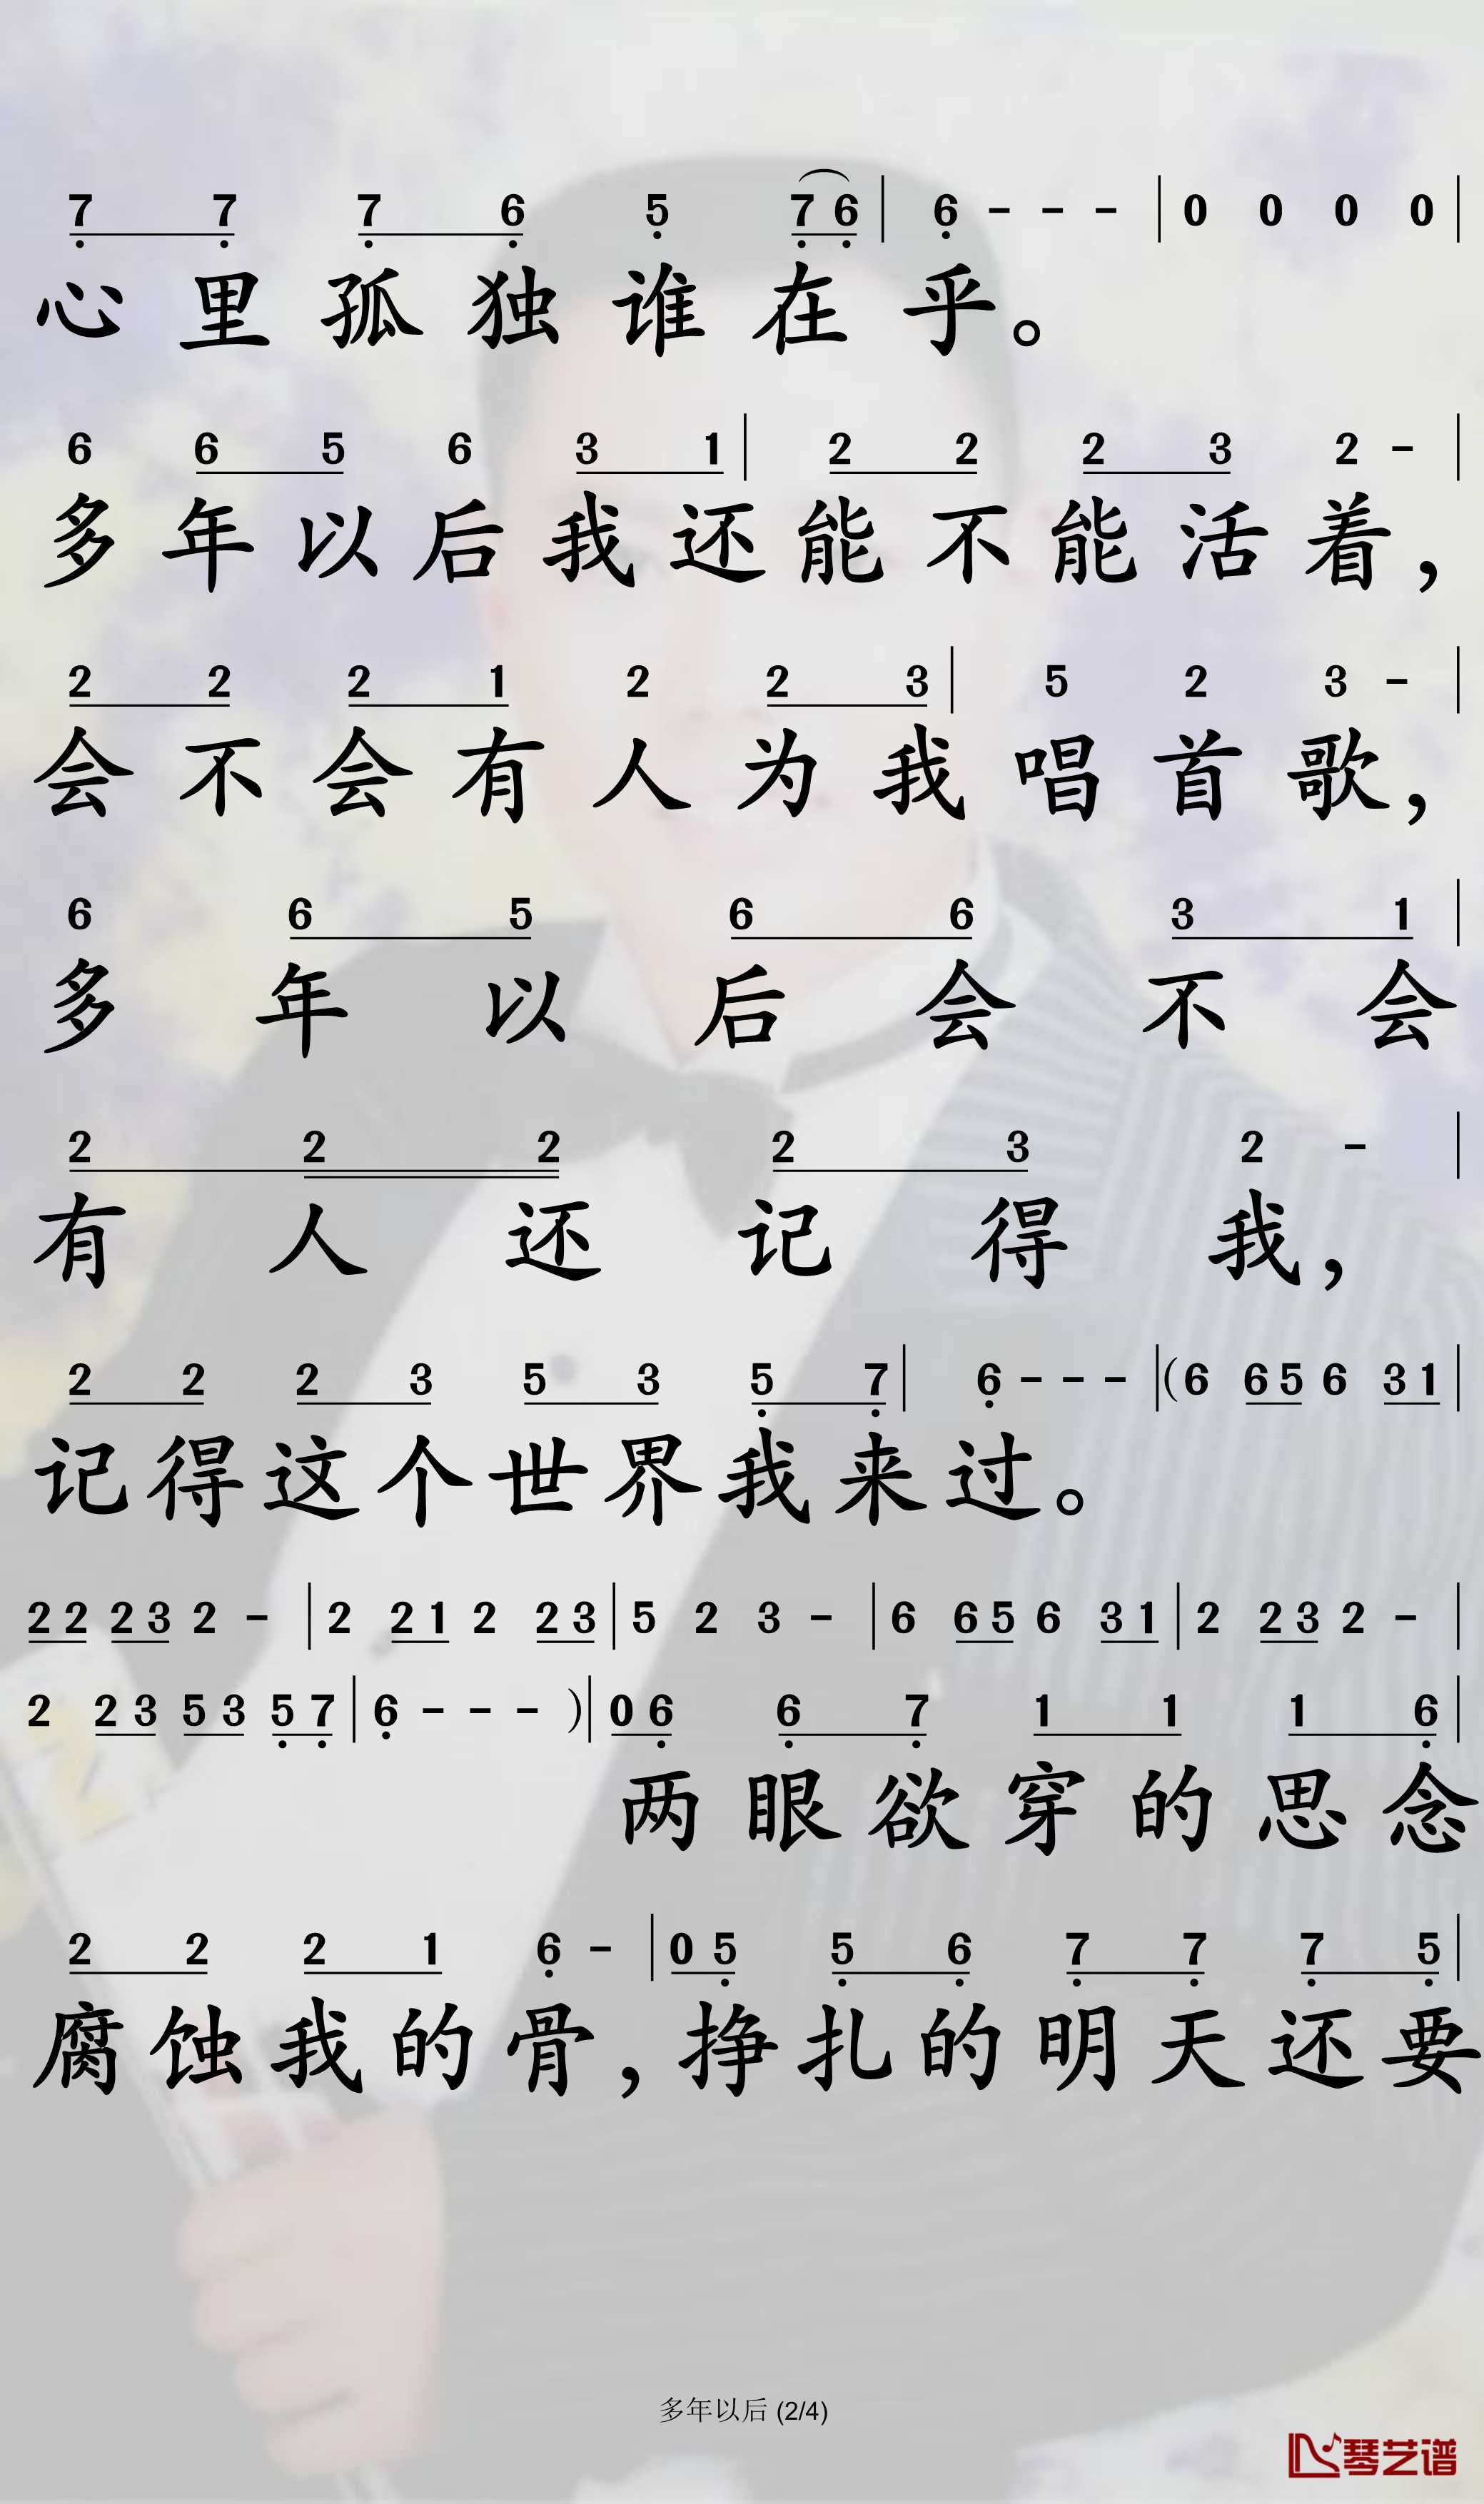 7 7 7 6 5 7 6 | 6 - - - | 0 0 0 0 |
心里孤独谁在乎。
6 6 5 6 3 1 | 2 2 2 3 2 - |
多年以后我还能不能活着,
2 2 2 1 2 2 3 | 5 2 3 - |
会不会有人为我唱首歌,
6 6 5 6 6 3 1 |
多年以后会不会
2 2 2 2 3 2 - |
有人还记得我,
2 2 2 3 5 3 5 7 | 6 - - - | (6 6 5 6 3 1 |
记得这个世界我来过。
2 2 2 3 2 - | 2 2 1 2 2 3 | 5 2 3 - | 6 6 5 6 3 1 | 2 2 3 2 - |
2 2 3 5 3 5 7 | 6 - - - ) | 0 6 6 7 1 1 1 6 |
两眼欲穿的思念
2 2 2 1 6 - | 0 5 5 6 7 7 7 5 |
腐蚀我的骨,挣扎的明天还要
多年以后 (2/4)
琴艺谱